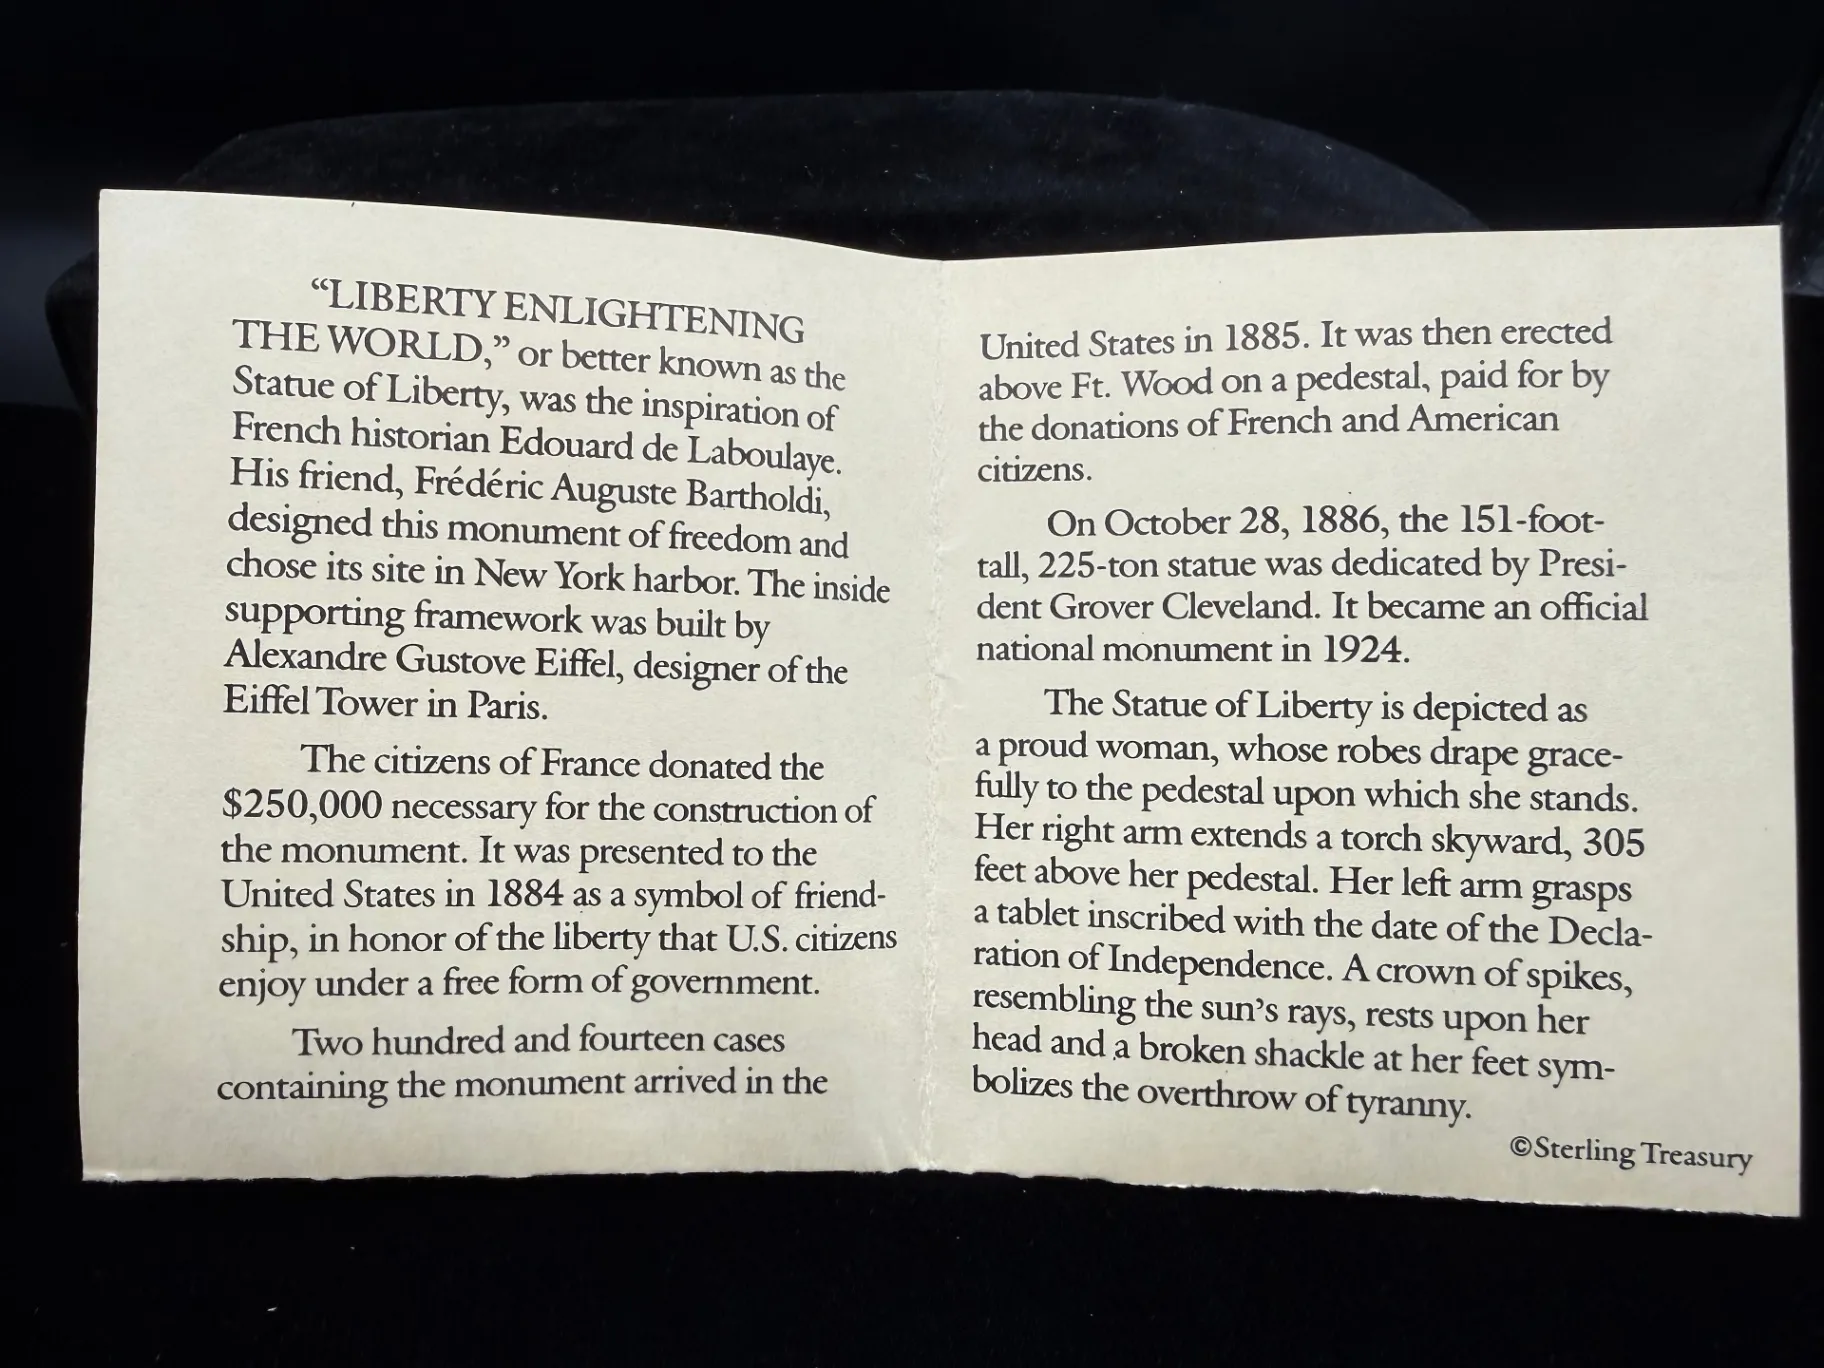 “LIBERTY ENLIGHTENING
THE WORLD,” or better known as the
Statue of Liberty, was the inspiration of
French historian Edouard de Laboulaye.
His friend, Frédéric Auguste Bartholdi,
designed this monument of freedom and
chose its site in New York harbor. The inside
supporting framework was built by
Alexandre Gustove Eiffel, designer of the
Eiffel Tower in Paris.
The citizens of France donated the
$250,000 necessary for the construction of
the monument. It was presented to the
United States in 1884 as a symbol of friend-
ship, in honor of the liberty that U.S. citizens
enjoy under a free form of government.
Two hundred and fourteen cases
containing the monument arrived in the
United States in 1885. It was then erected
above Ft. Wood on a pedestal, paid for by
the donations of French and American
citizens.
On October 28, 1886, the 151-foot-
tall, 225-ton statue was dedicated by Presi-
dent Grover Cleveland. It became an official
national monument in 1924.
The Statue of Liberty is depicted as
a proud woman, whose robes drape grace-
fully to the pedestal upon which she stands.
Her right arm extends a torch skyward, 305
feet above her pedestal. Her left arm grasps
a tablet inscribed with the date of the Decla-
ration of Independence. A crown of spikes,
resembling the sun’s rays, rests upon her
head and a broken shackle at her feet sym-
bolizes the overthrow of tyranny.
©Sterling Treasury